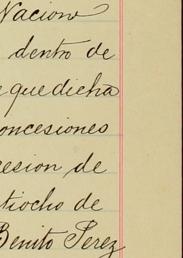 Nacion
dentro de
e que dicha
oncesiones
cesion de
tiocho de
Benito Perez